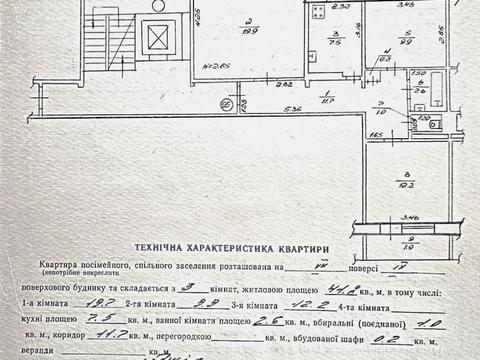 N25
2
19.9
H=2.65
2.32
3
7.5
3.16
3.46
5
9.9
2.85
4
0.2
1.50
6
2.6
2.82
1
11.7
1.28
5.36
7
1.0
1.20
1.65
8
12.2
3.46
9
1.0
ТЕХНІЧНА ХАРАКТЕРИСТИКА КВАРТИРИ
Квартира посімейного, спільного заселення розташована на VII поверсі IX
(непотрібне викреслити)
поверхового будинку та складається з 3 кімнат, житловою площею 41,8 кв., м, в тому числі:
1-а кімната 19.7 2-га кімната 9.9 3-я кімната 12.2 4-та кімната
кухні площею 7.5 кв. м., ванної кімнати площею 2.6 кв. м., вбиральні (поєднаної) 1.0
кв. м., коридор 11.7 кв. м., перегородкою кв. м., вбудованої шафи 0.2 кв. м.
веранди кв. м.